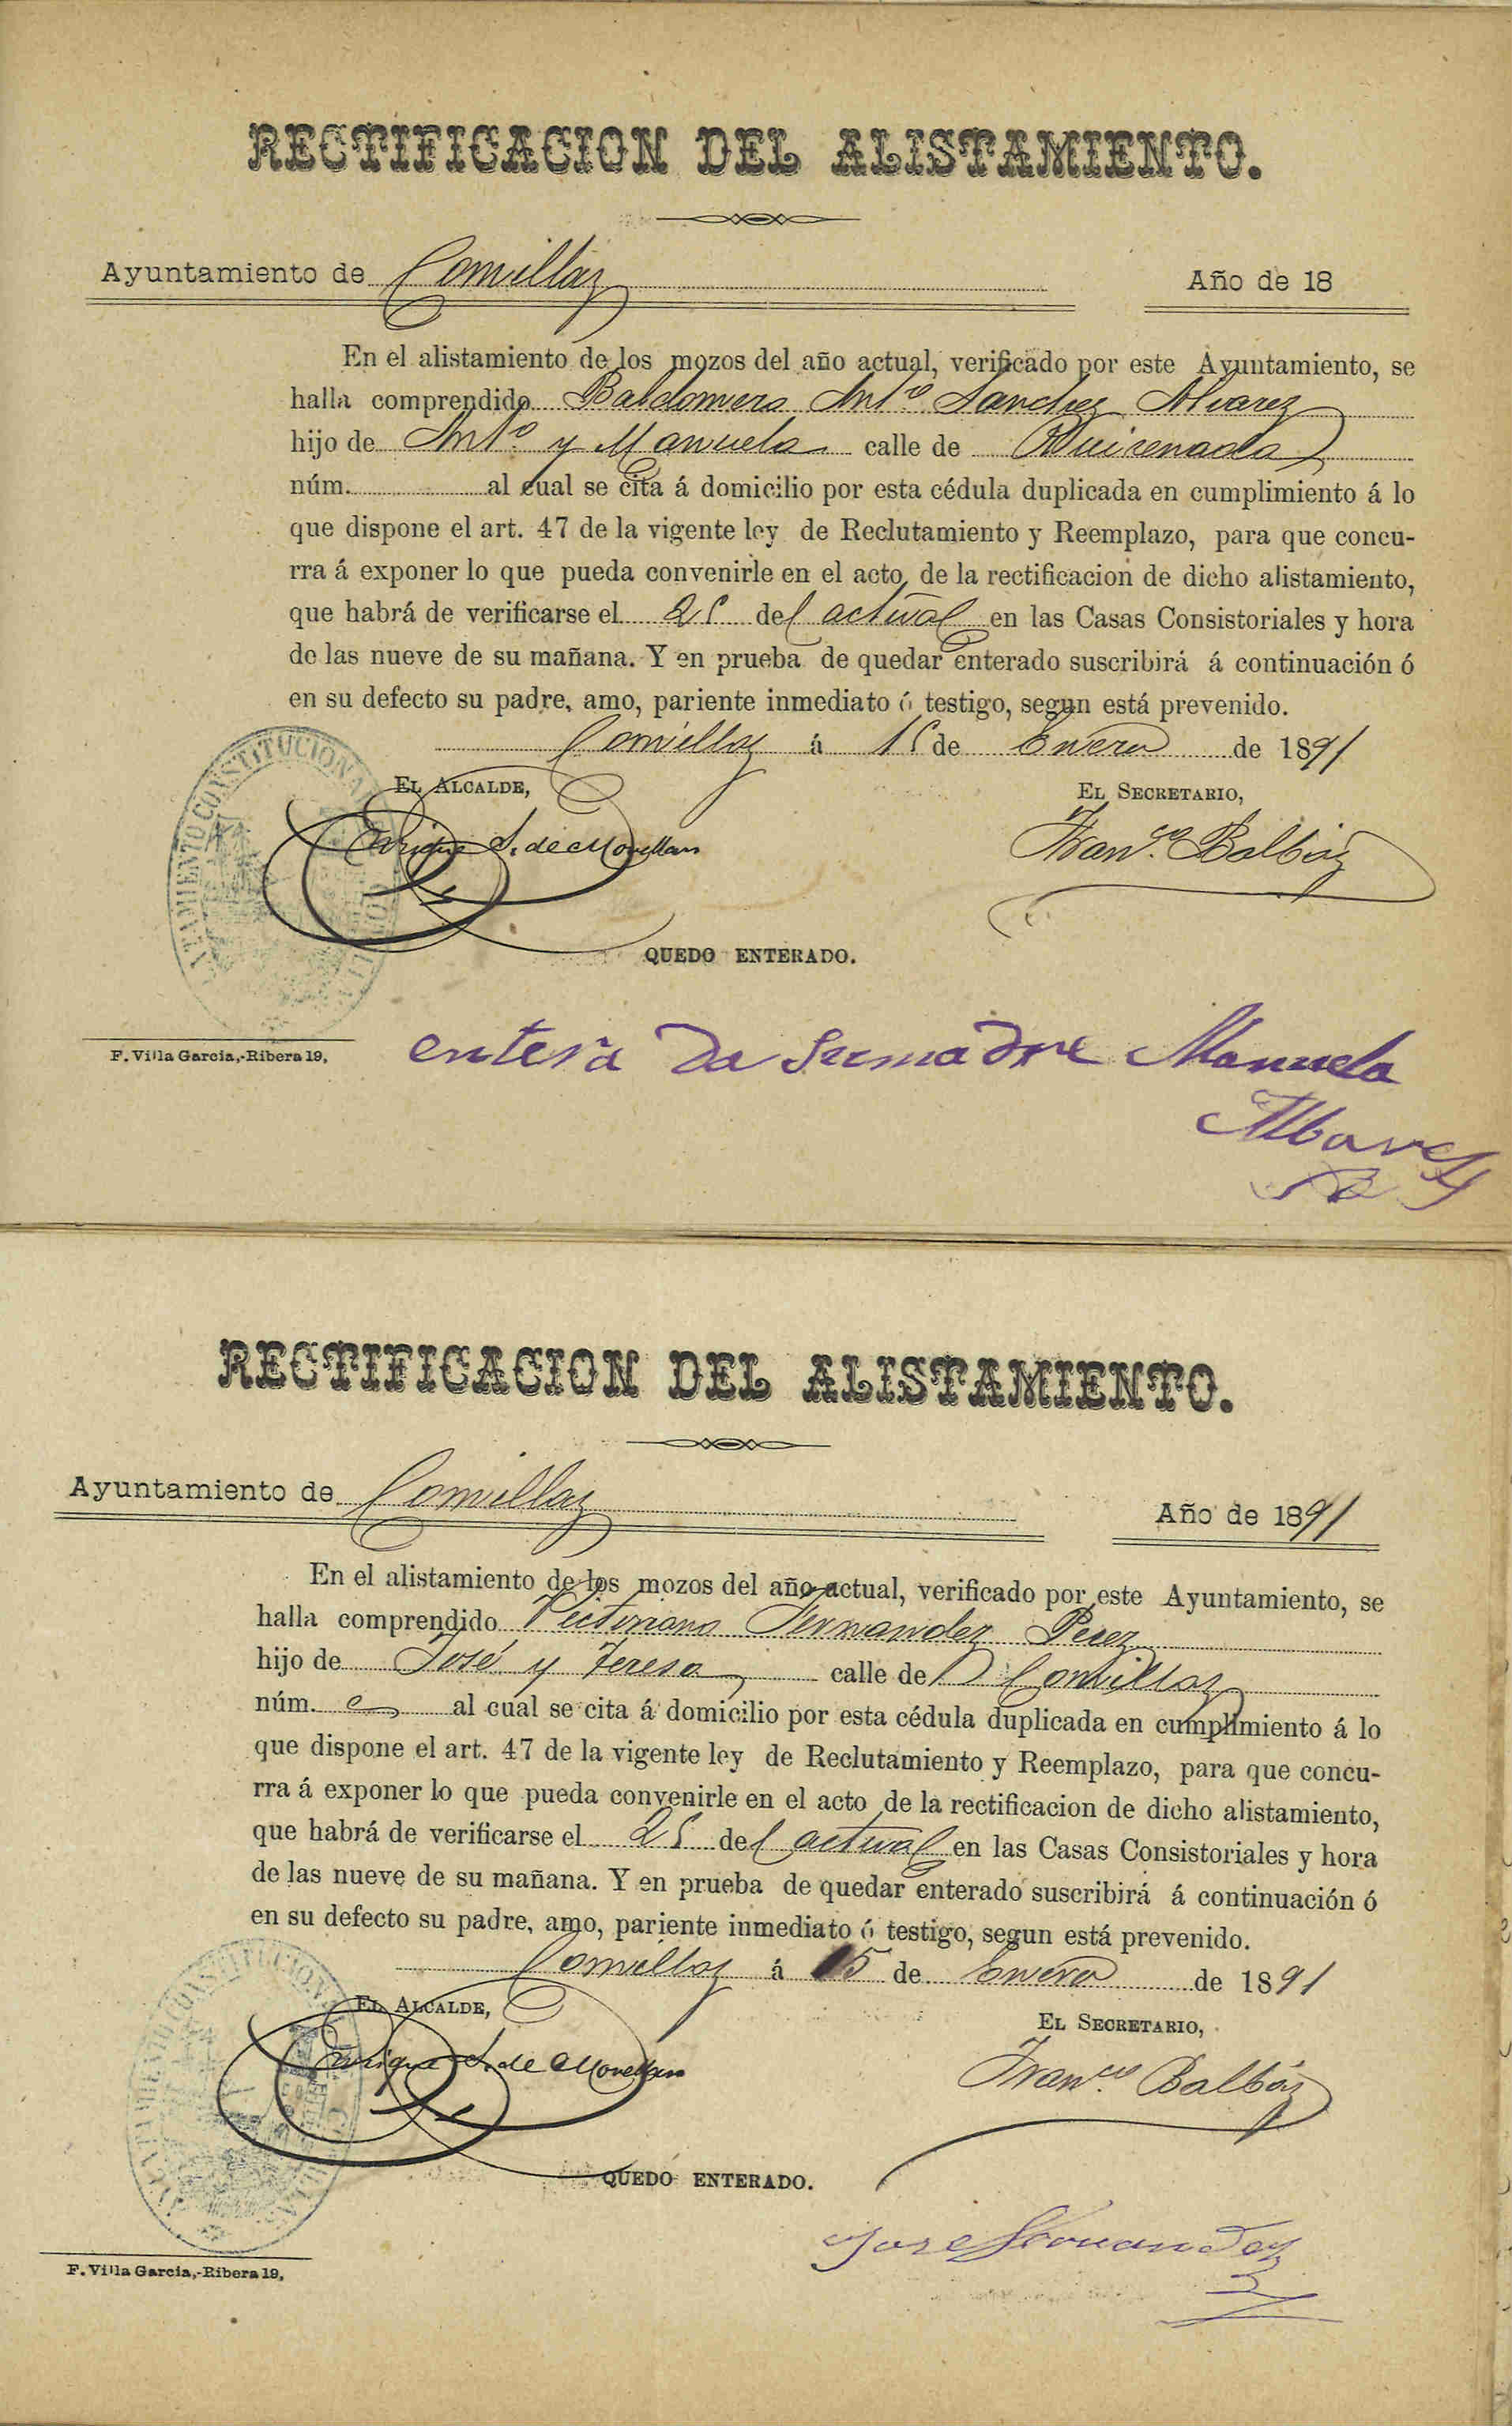 RECTIFICACION DEL ALISTAMIENTO.
Ayuntamiento de Comillas Año de 18
En el alistamiento de los mozos del año actual, verificado por este Ayuntamiento, se
halla comprendido Baldomero Ant.º Sanchez Alvarez
hijo de Ant.º y Manuela calle de Ruisenada
núm. al cual se cita á domicilio por esta cédula duplicada en cumplimiento á lo
que dispone el art. 47 de la vigente ley de Reclutamiento y Reemplazo, para que concu-
rra á exponer lo que pueda convenirle en el acto de la rectificacion de dicho alistamiento,
que habrá de verificarse el 25 del actual en las Casas Consistoriales y hora
de las nueve de su mañana. Y en prueba de quedar enterado suscribirá á continuación ó
en su defecto su padre, amo, pariente inmediato ó testigo, segun está prevenido.
Comillas á 15 de Enero de 1891
EL ALCALDE, EL SECRETARIO,
Enrique S. de Movellan Fran.co Balbás
QUEDO ENTERADO.
F. Villa García,-Ribera 19,
entera da su madre Manuela
Albarez
RECTIFICACION DEL ALISTAMIENTO.
Ayuntamiento de Comillas Año de 1891
En el alistamiento de los mozos del año actual, verificado por este Ayuntamiento, se
halla comprendido Victoriano Fernandez Perez
hijo de José y Teresa calle de Comillas
núm. al cual se cita á domicilio por esta cédula duplicada en cumplimiento á lo
que dispone el art. 47 de la vigente ley de Reclutamiento y Reemplazo, para que concu-
rra á exponer lo que pueda convenirle en el acto de la rectificacion de dicho alistamiento,
que habrá de verificarse el 25 del actual en las Casas Consistoriales y hora
de las nueve de su mañana. Y en prueba de quedar enterado suscribirá á continuación ó
en su defecto su padre, amo, pariente inmediato ó testigo, segun está prevenido.
Comillas á 15 de Enero de 1891
EL ALCALDE, EL SECRETARIO,
Enrique S. de Movellan Fran.co Balbás
QUEDO ENTERADO.
Jose Fernandez
F. Villa García,-Ribera 19,